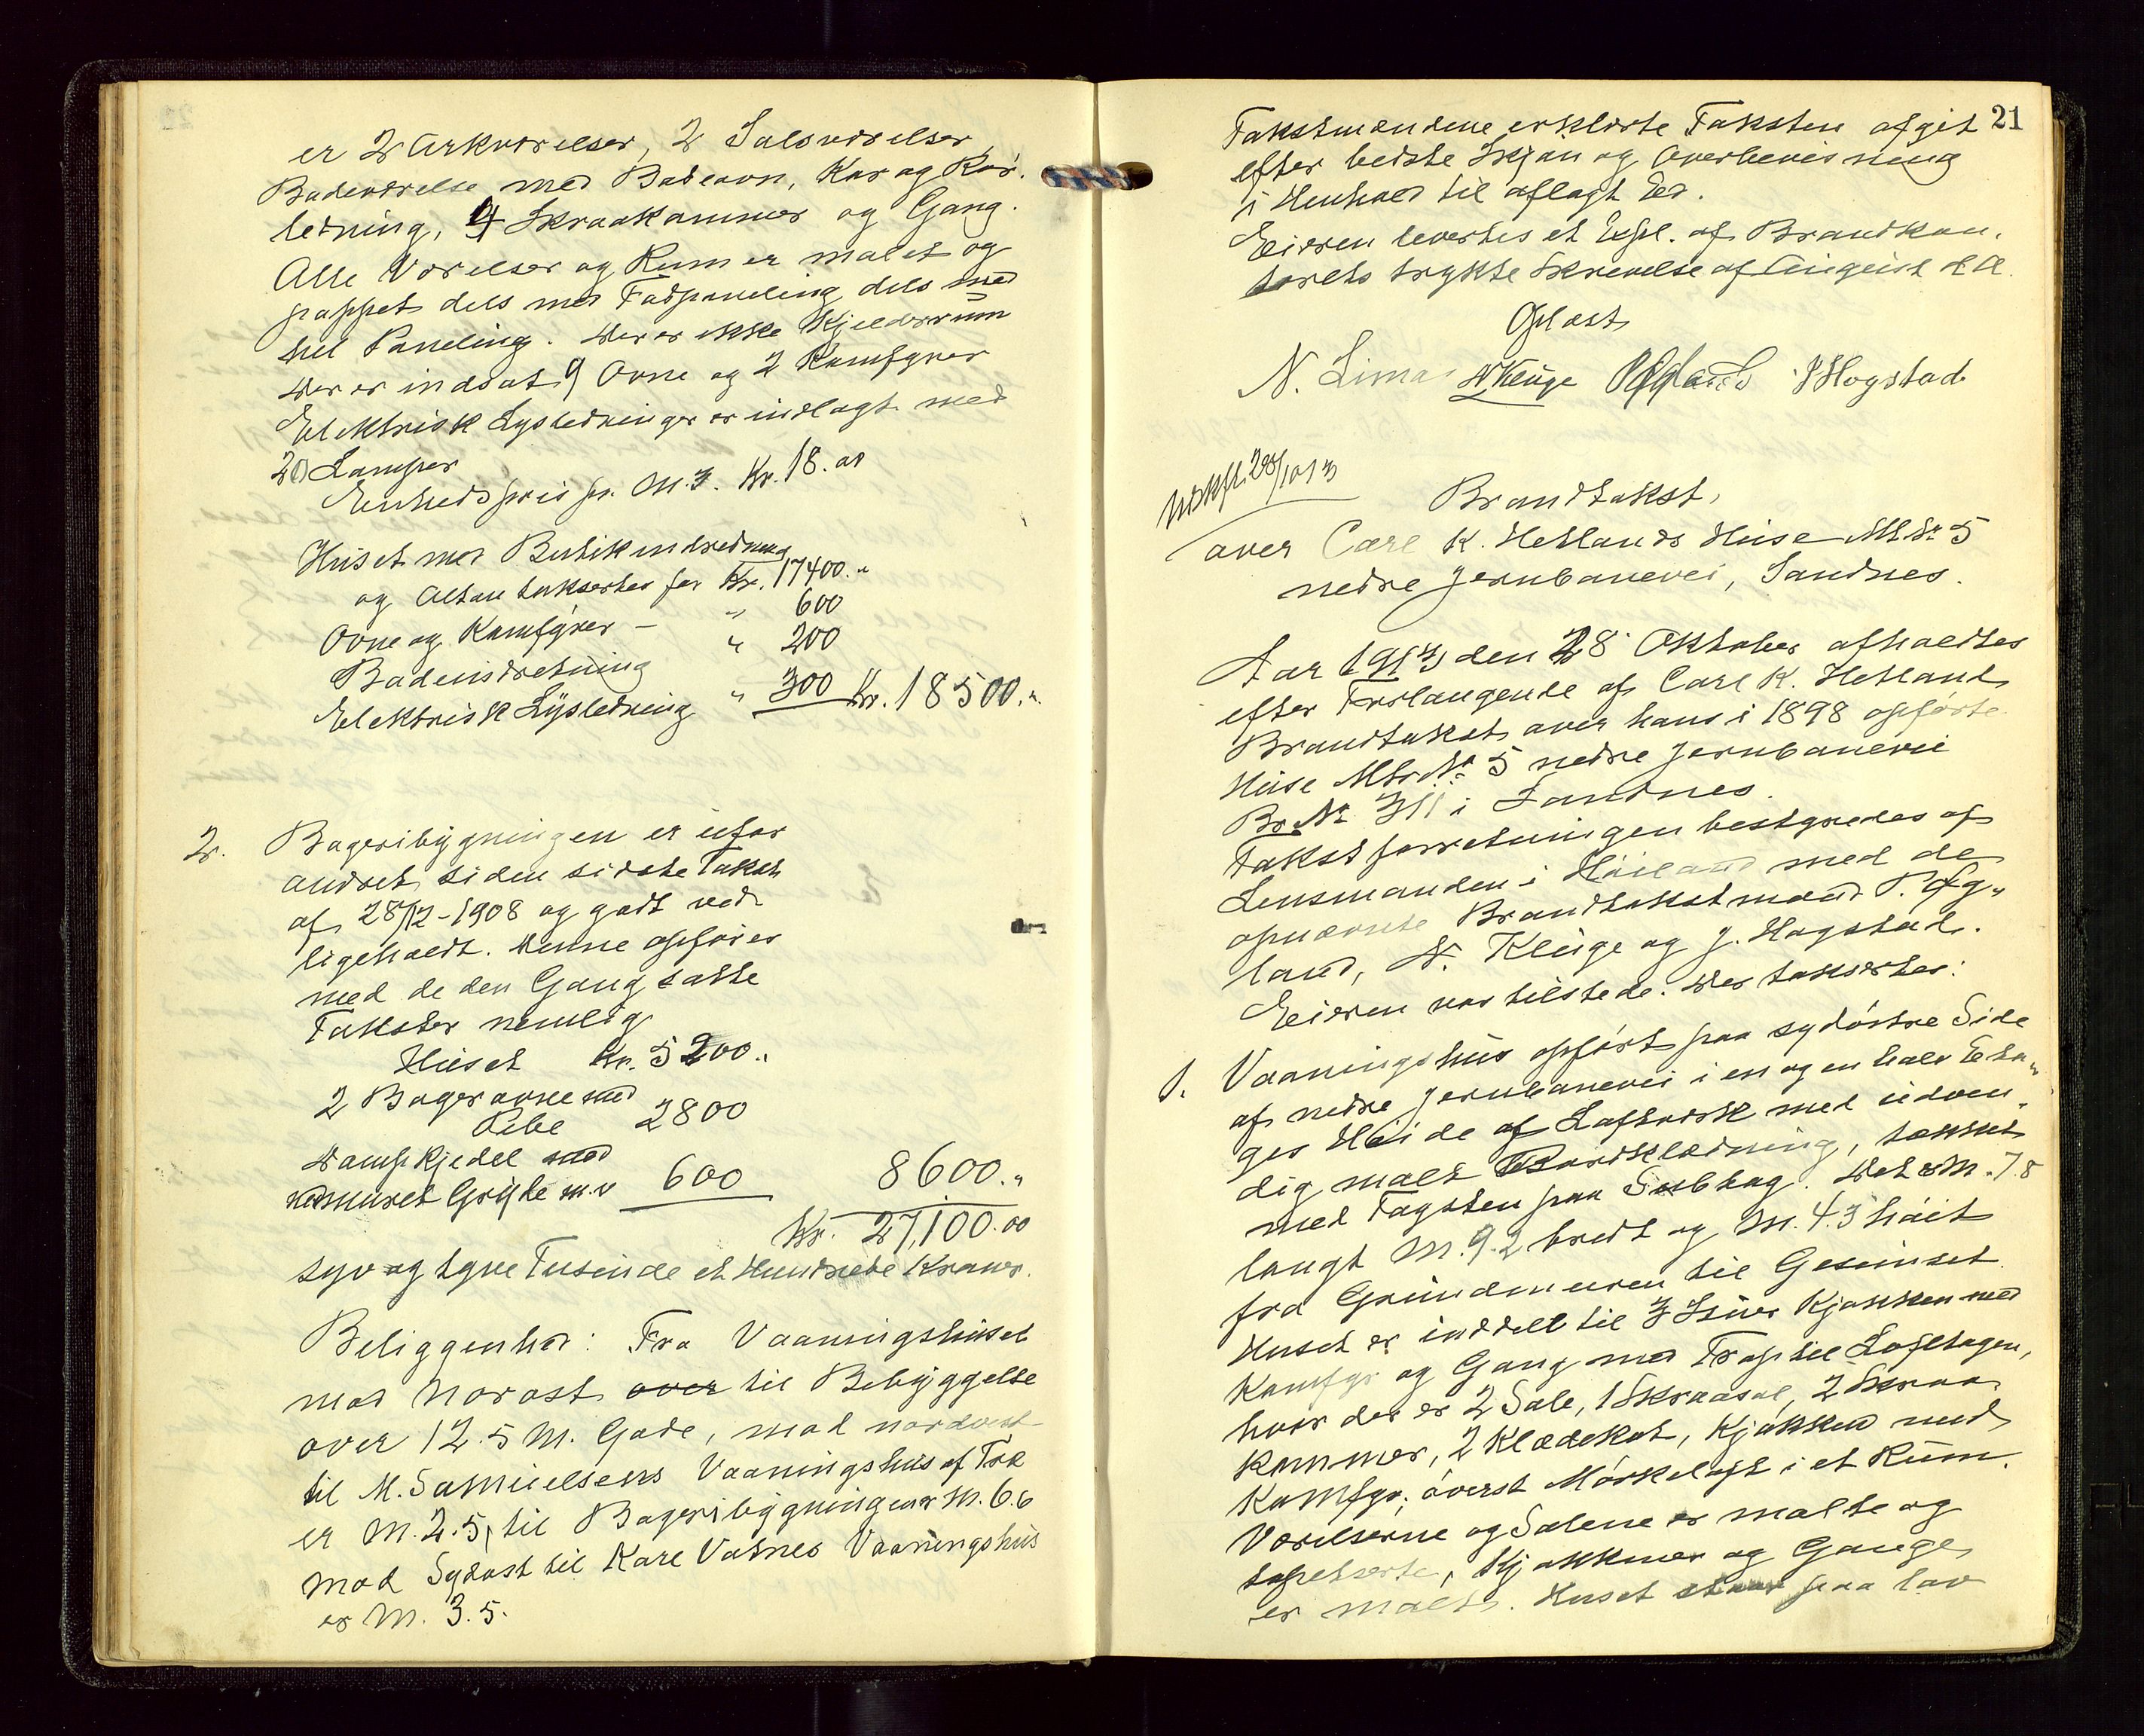 er 2 Arkværelser, 2 Salsværelser
Badeværelse med Badeovn, Kar og Rør-
ledning, 4 Skraakammer og Gang.
Alle Værelser og Rum er malet og
pappet dels med Fadpaneling dels med
hel Paneling. Der er ikke Kjelderrum
Der er indsat 9 Ovne og 2 Komfyrer
Elektrisk Lysledninger er indlagt med
20 Lamper
Enhedspris pr. M.3. Kr. 18.00
Huset med Butikindredning
og Altan takseres for Kr. 17400."
Ovne og Komfyrer – " 600
Badeindretning " 200
Elektrisk Lysledning " 300 Kr. 18500."
2. Bageribygningen er ufor
andret siden sidste Takst
af 28/12-1908 og godt ved-
ligeholdt. Denne opføres
med de den Gang satte
Takster nemlig
Huset Kr. 5200."
2 Bagerovne med
Pibe 2800
Dampkjedel med
nedmuret Gryte m.v 600 8600."
Kr. 27,100.00
syv og tyve Tusinde et Hundrede Kroner.
Beliggenhed: Fra Vaaningshuset
mod Norost over til Bebyggelse
over 12.5 M. Gade, mod nordvest
til M. Samuelsens Vaaningshus af Træ
er M. 2.5, til Bageribygningen er M. 6.6
mod Sydost til Karl Vatnes Vaaningshus
er M. 3.5.
21
Takstmændene erklærte Taksten afgit
efter bedste Skjøn og Overbevisning
i Henhold til aflagt Ed.
Eieren levertes et Expl. af Brandkon-
torets trykte Skrivelse af August d.A.
Oplæst
N. Lima N Kluge P Ogland J Hogstad
Utskr. 28/10 13
Brandtakst,
over Carl K. Hetlands Huse Mt. No 5
nedre Jernbanevei, Sandnes.
Aar 1913 den 28 Oktober afholdtes
efter Forlangende af Carl K. Hetland
Brandtakst over hans i 1898 opførte
Huse Mtr. No 5 nedre Jernbanevei
Br. No 311 i Sandnes.
Takstforretningen bestyredes af
Lensmanden i Høiland med de
opnævnte Brandtakstmænd P. Og-
land, N. Kluge og J. Hogstad.
Eieren var tilstede. Der takseres:
1. Vaaningshus opført paa sydøstre Side
af nedre Jernbanevei i en og en halv Eta-
ges Høide af Laftverk med udven-
dig malt Bordklædning, tækket
med Tagsten paa Subtag. Det er M. 7.8
langt M. 9.2 bredt og M. 4.3 høit
fra Grundmuren til Gesimset.
Huset er inddelt til 3 Stuer Kjøkken med
Komfyr og Gang med Trap til Loftetagen,
hvor der er 2 Sale, 1 Skraasal, 2 Skraa-
kammer, 2 Klædekot, Kjøkken med
Komfyr, øverst Mørkeloft i et Rum.
Værelserne og Salene er malte og
tapetserte, Kjøkkener og Gange
er malte. Huset staar paa lav